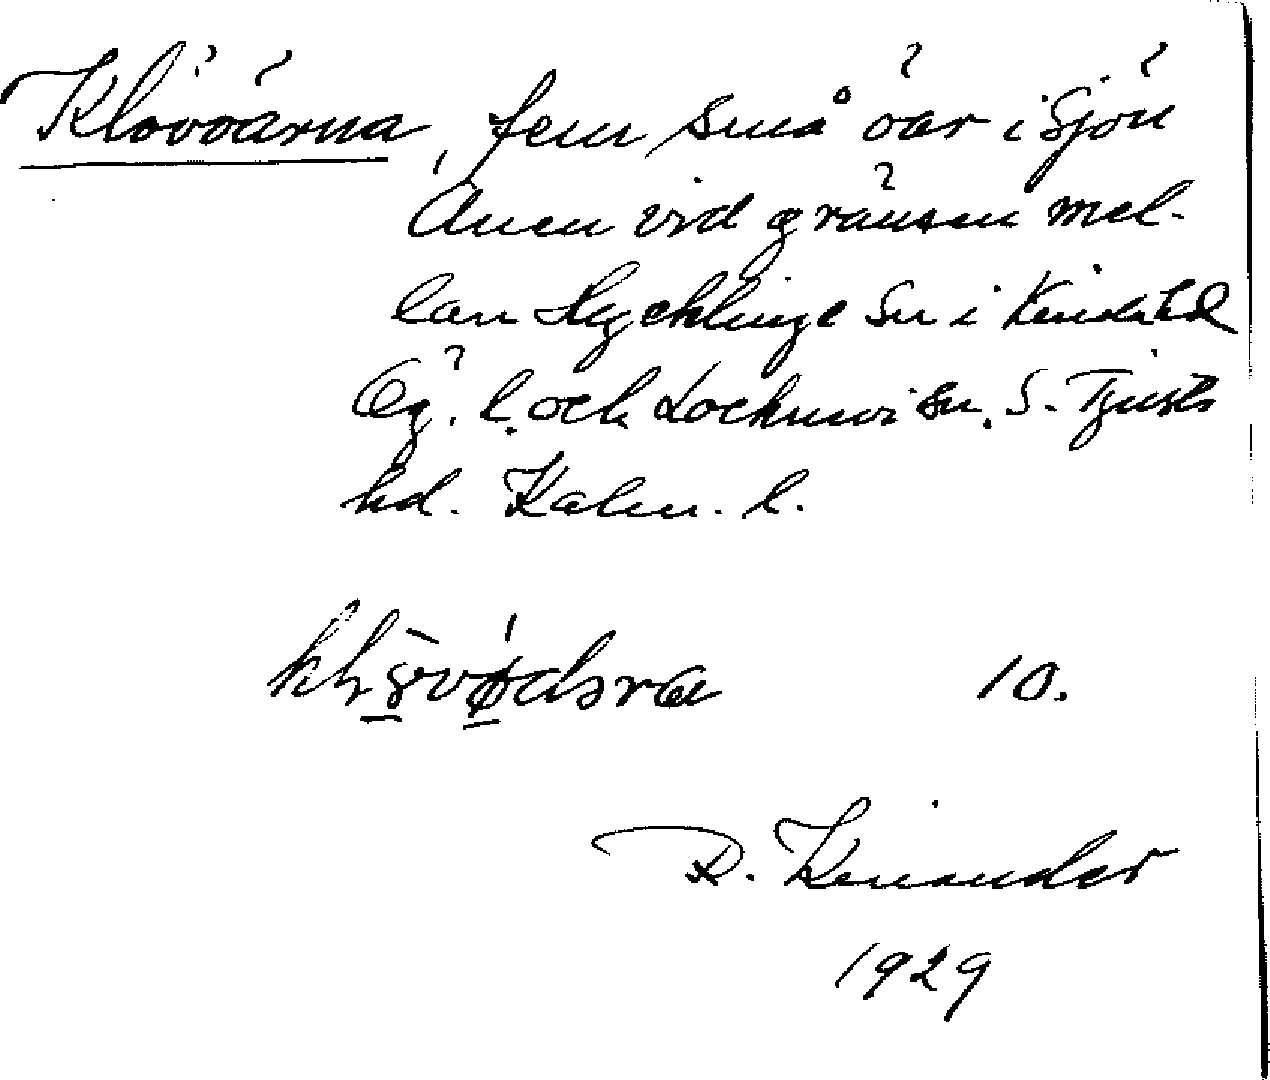 Klövöärna, fem små öar i sjön
Ånen vid gränsen mel-
lan Hycklinge sn i Kinda hd
Ög. l. och Locknevi sn, S. Tjusts
hd. Kalm. l.
10.
R. Kinander
1929